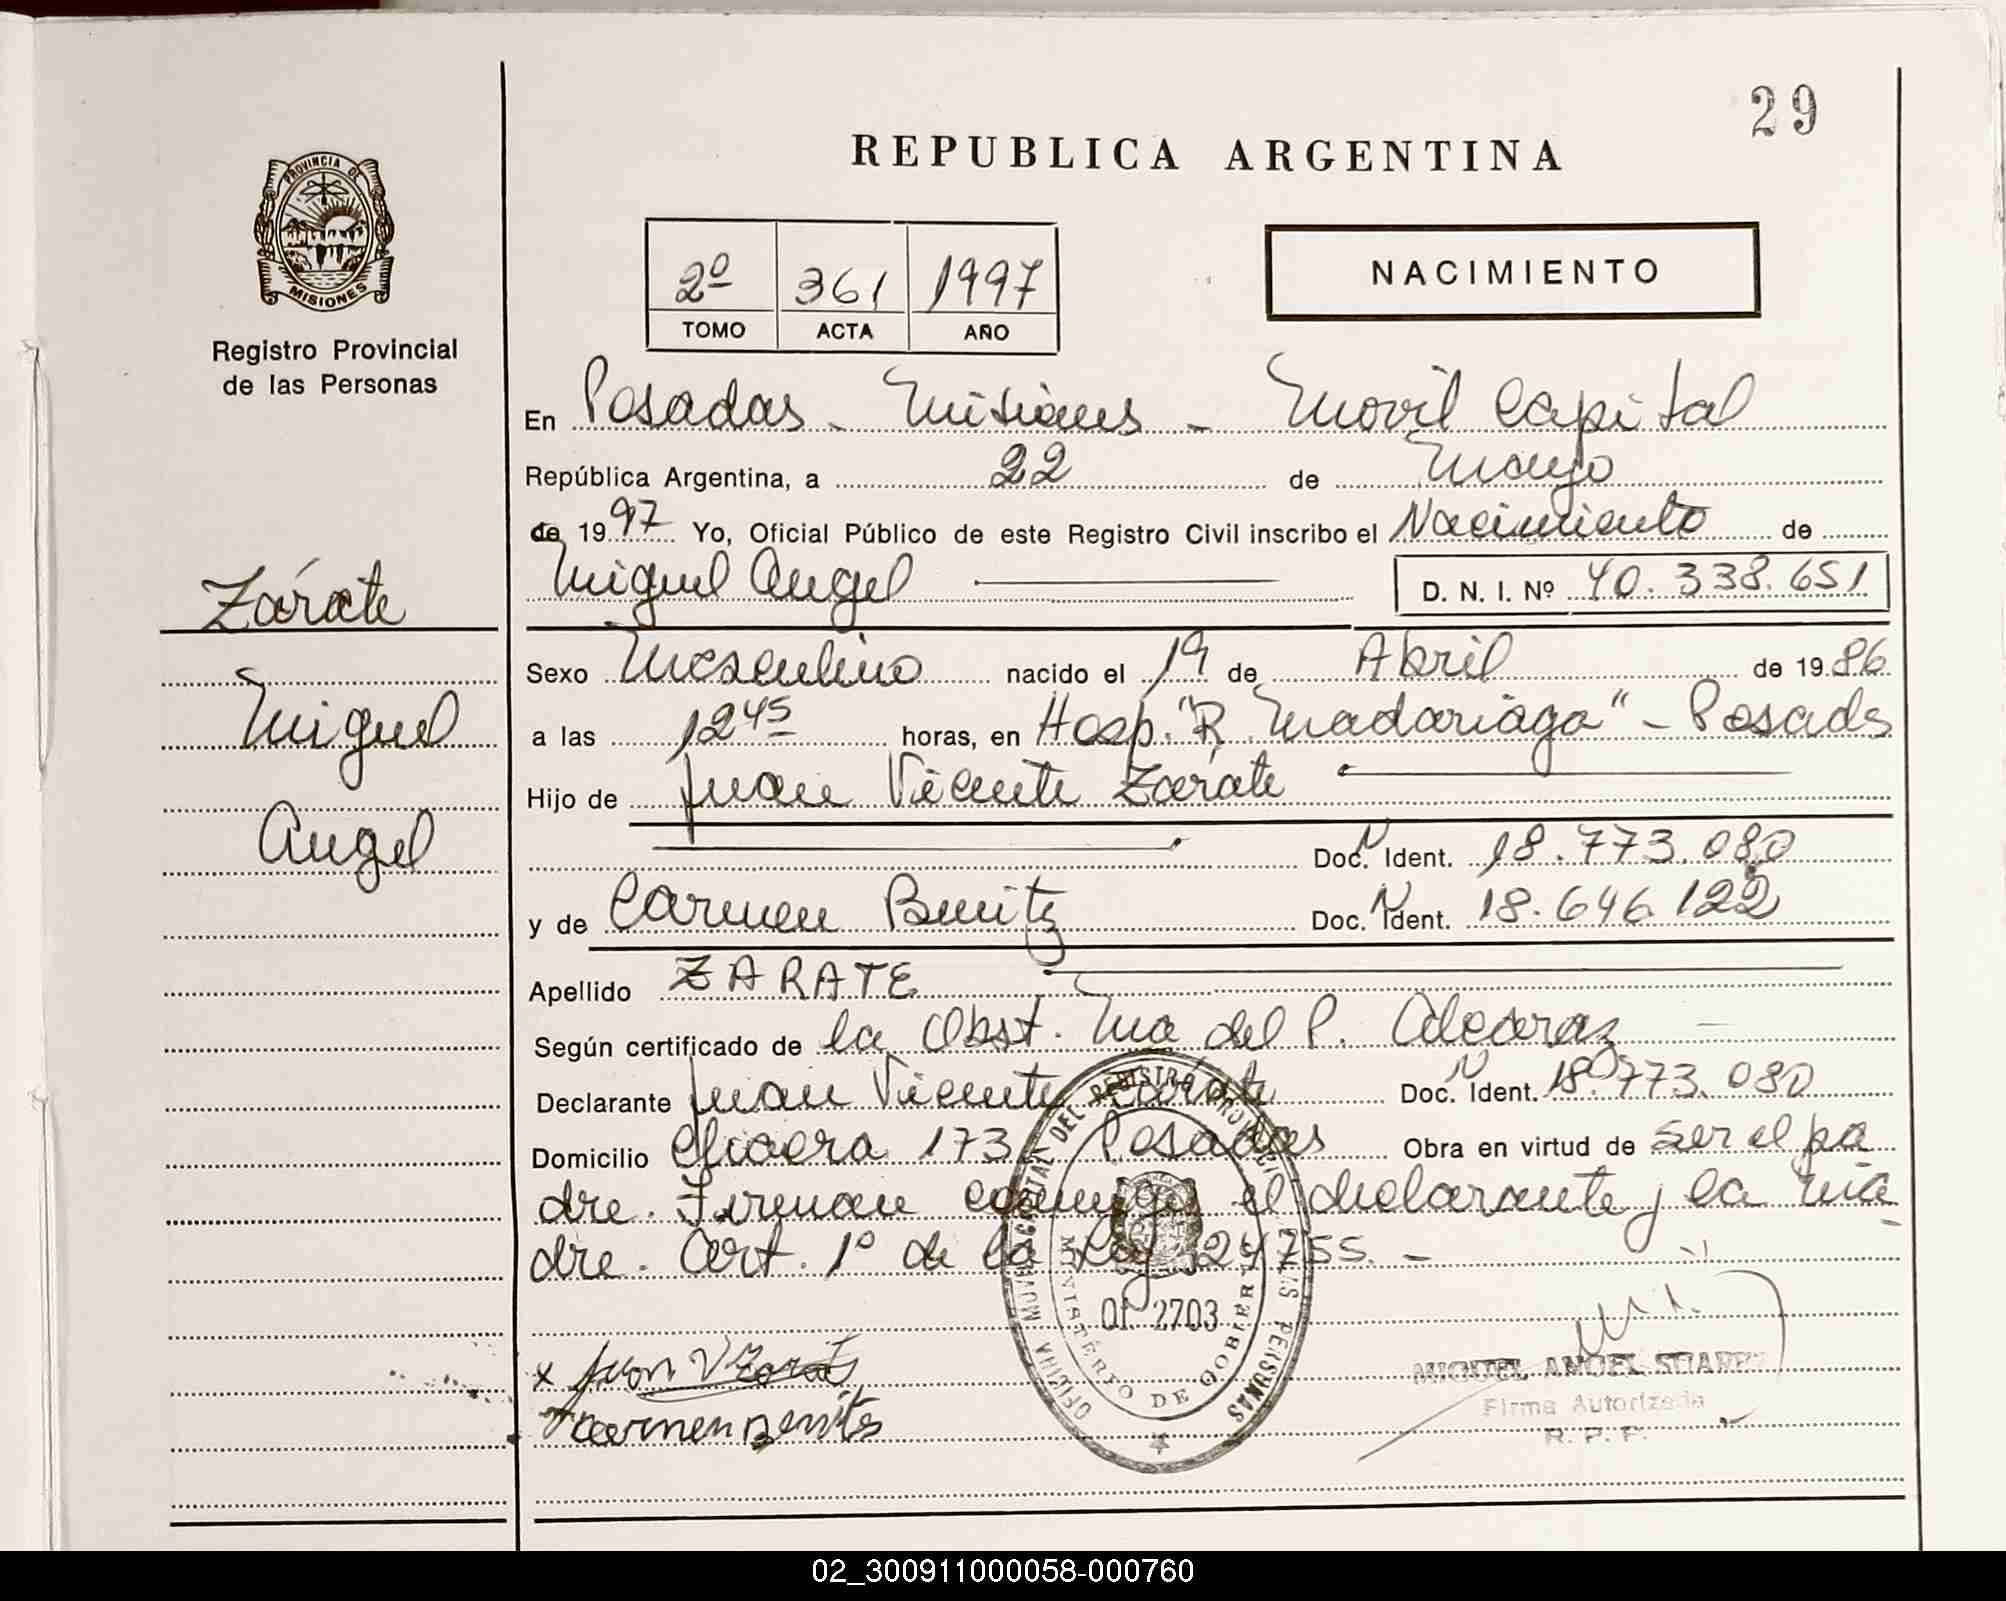 29
REPUBLICA ARGENTINA
PROVINCIA DE
MISIONES
Registro Provincial
de las Personas
2º 361 1997
TOMO ACTA AÑO
NACIMIENTO
En Posadas - Misiones - Movil Capital
República Argentina, a 22 de Mayo
de 1997 Yo, Oficial Público de este Registro Civil inscribo el Nacimiento de
Miguel Angel D. N. I. Nº 40.338.651
Zárate
Miguel
Angel
Sexo Masculino nacido el 19 de Abril de 1986
a las 12 45 horas, en Hosp. "R. Madariaga" - Posadas
Hijo de Juan Vicente Zárate
Doc. N Ident. 18.773.080
y de Carmen Benitz Doc. N Ident. 18.646.122
Apellido ZARATE
Según certificado de la Obst. Ma del P. Alcaraz
Declarante Juan Vicente Zárate Doc. N Ident. 18.773.080
Domicilio 173 Posadas Obra en virtud de ser el pa
dre. Firman conmigo el declarante y la ma
dre. Art. 1º de la Ley 24755. -
OFICINA MOVIL CAPITAL DEL REGISTRO PROVINCIAL DE LAS PERSONAS
MINISTERIO DE GOBIERNO
Of 2703
x Juan V Zarate
x Carmen Benites
MIGUEL ANGEL
Firma Autorizada
R. P. P.
02_300911000058-000760